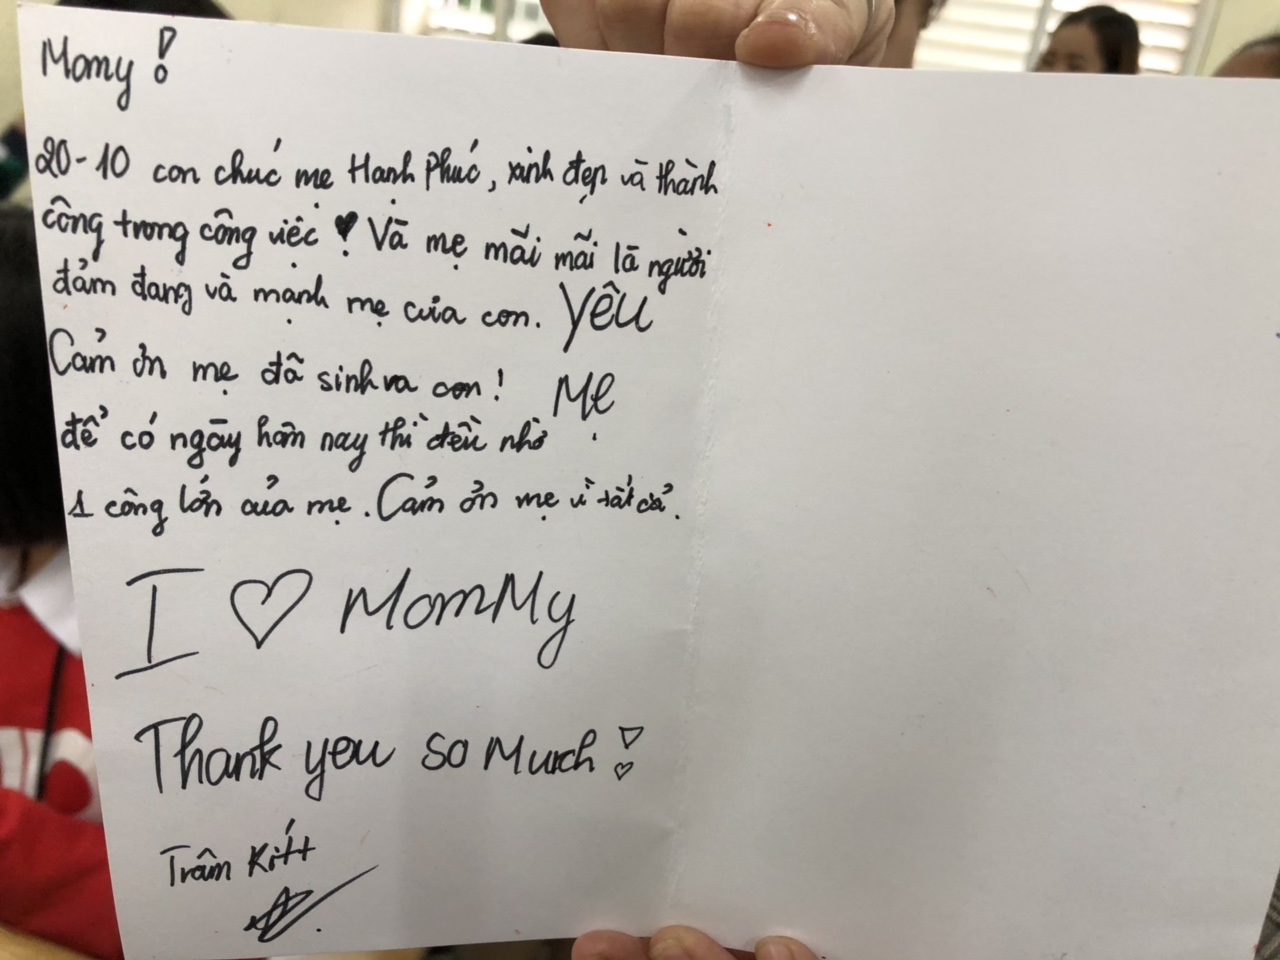 Momy !
20-10 con chúc mẹ Hạnh Phúc, xinh đẹp và thành
công trong công việc ! Và mẹ mãi mãi là người
đảm đang và mạnh mẹ của con. Yêu
Cảm ơn mẹ đã sinh ra con ! Mẹ
để có ngày hôm nay thì đều nhờ
1 công lớn của mẹ. Cảm ơn mẹ vì tất cả.
I ♡ MomMy
Thank you so Much !
Trâm Kítt